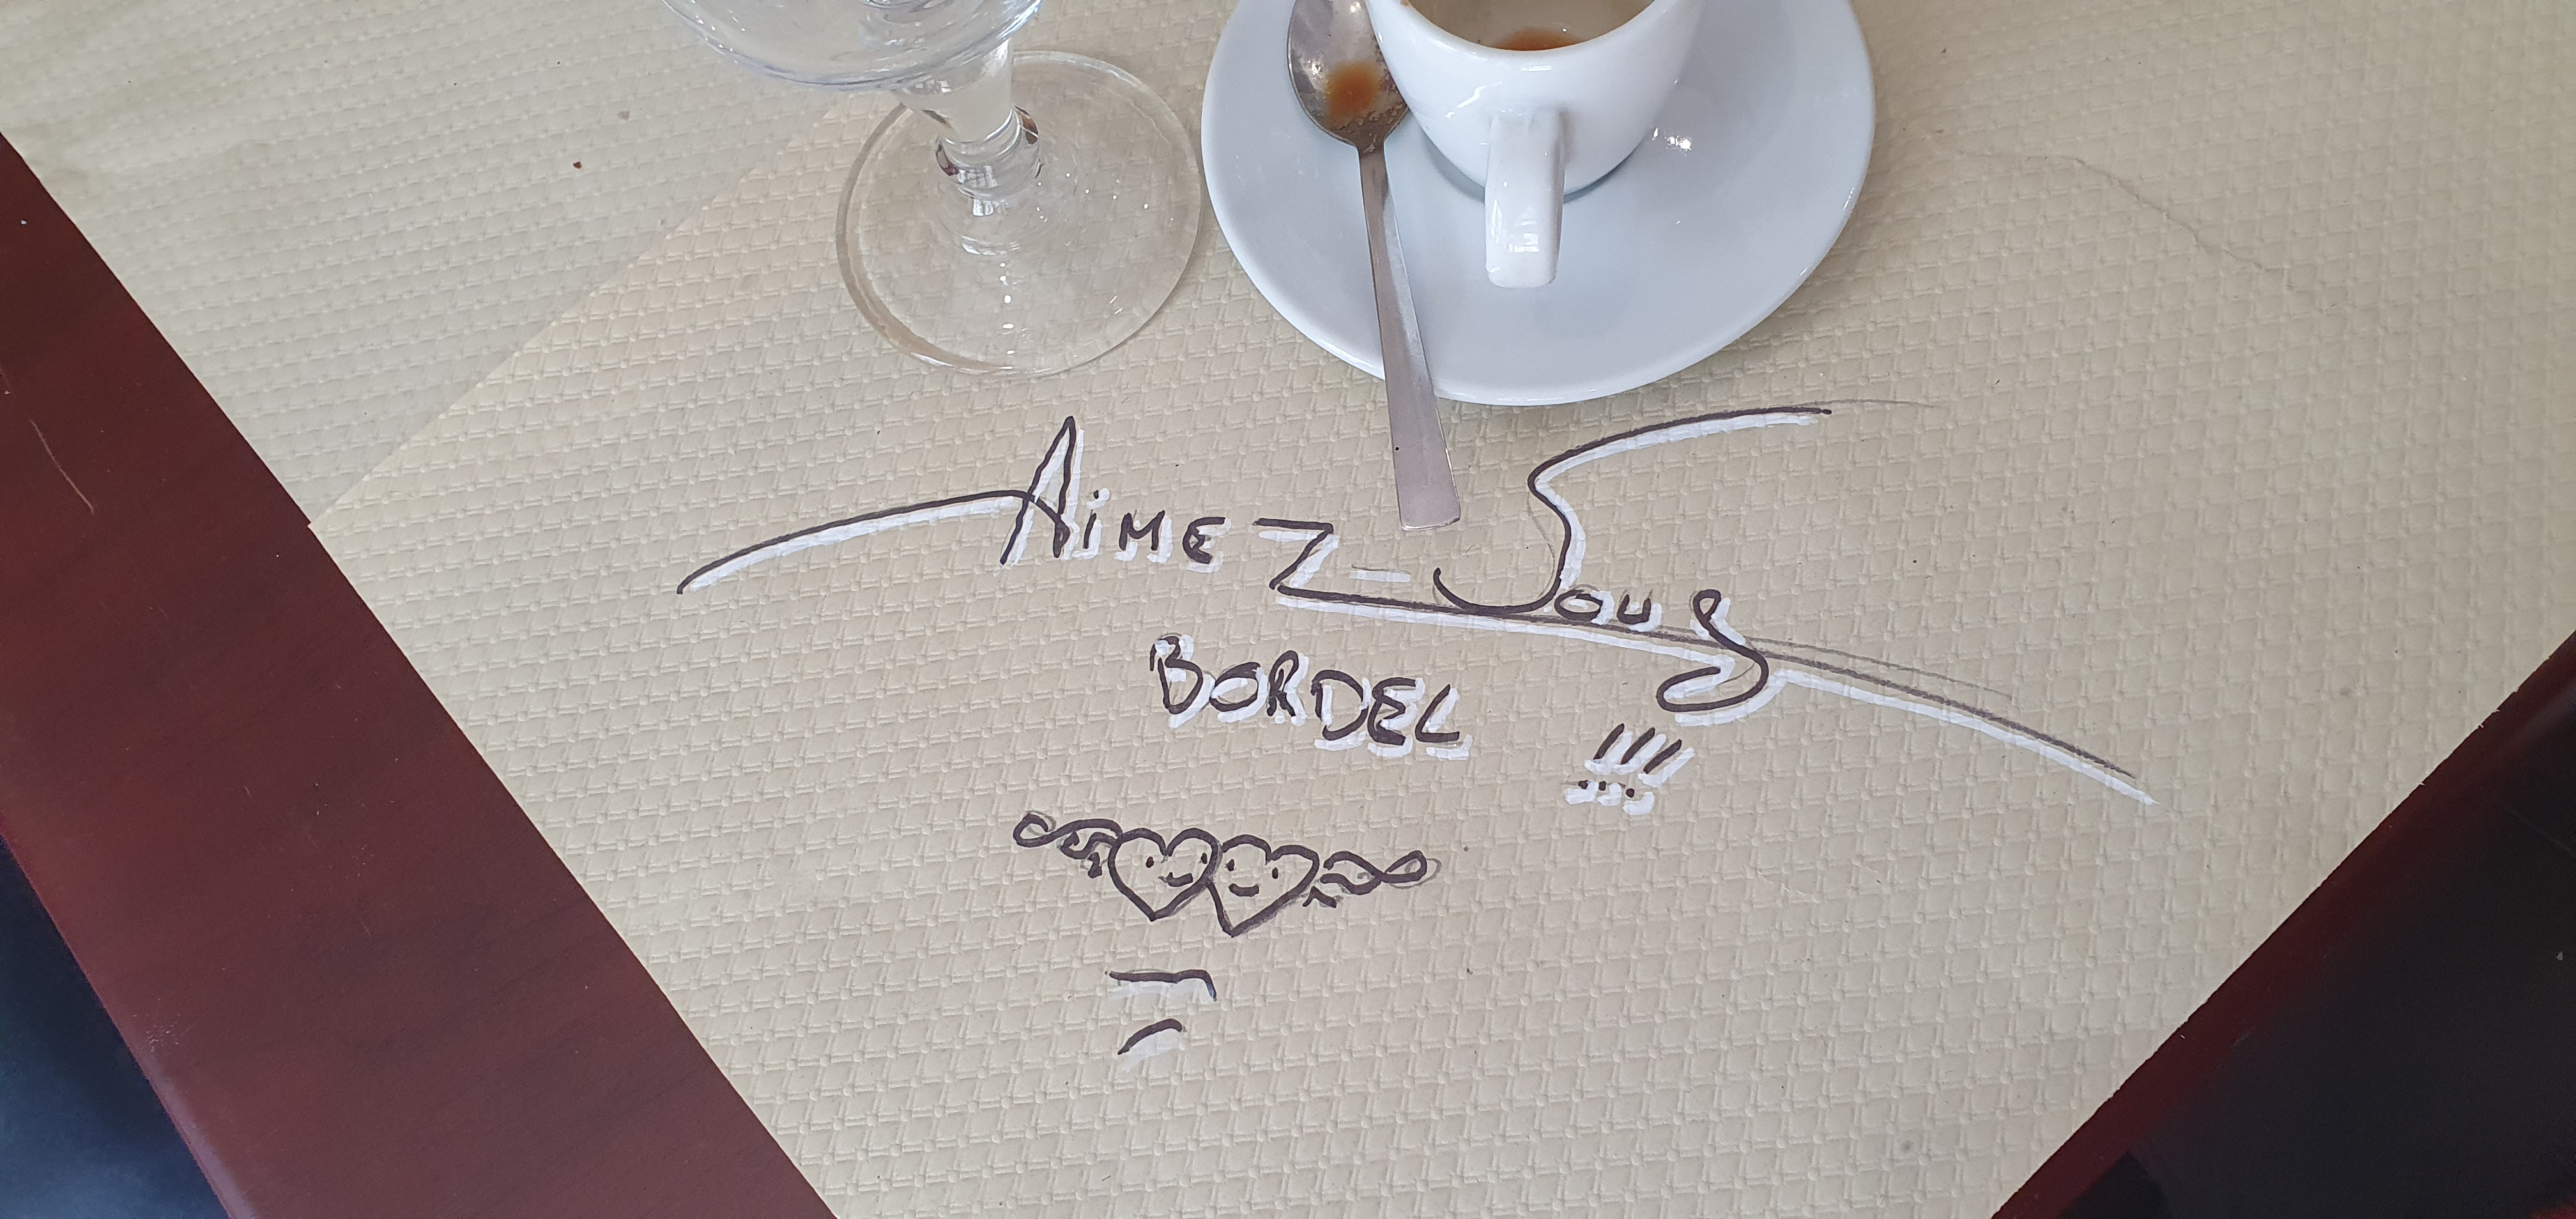 AiMEZ-Vous
BORDEL !!!